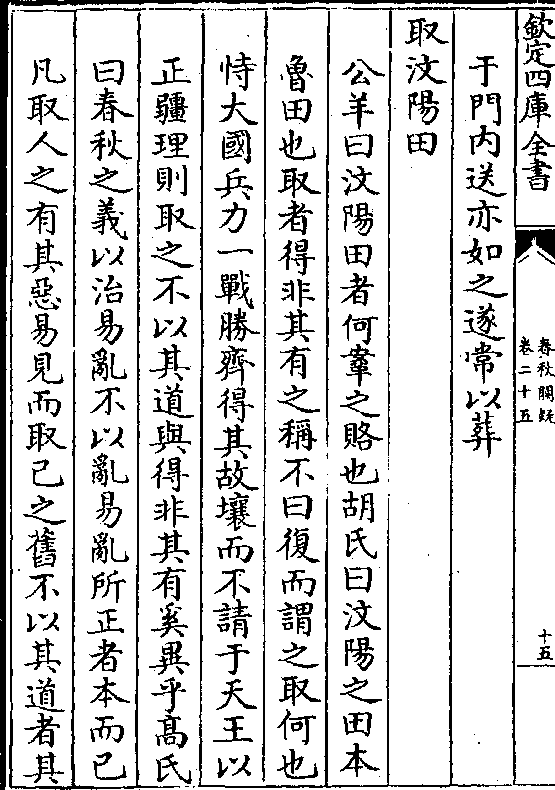 欽定四庫全書
春秋闕疑
卷二十五
十五
于門内送亦如之遂常以葬
取汶陽田
公羊曰汶陽田者何鞌之賂也胡氏曰汶陽之田本
魯田也取者得非其有之稱不曰復而謂之取何也
恃大國兵力一戰勝齊得其故壤而不請于天王以
正疆理則取之不以其道與得非其有奚異乎髙氏
曰春秋之義以治易亂不以亂易亂所正者本而已
凡取人之有其惡易見而取已之舊不以其道者其